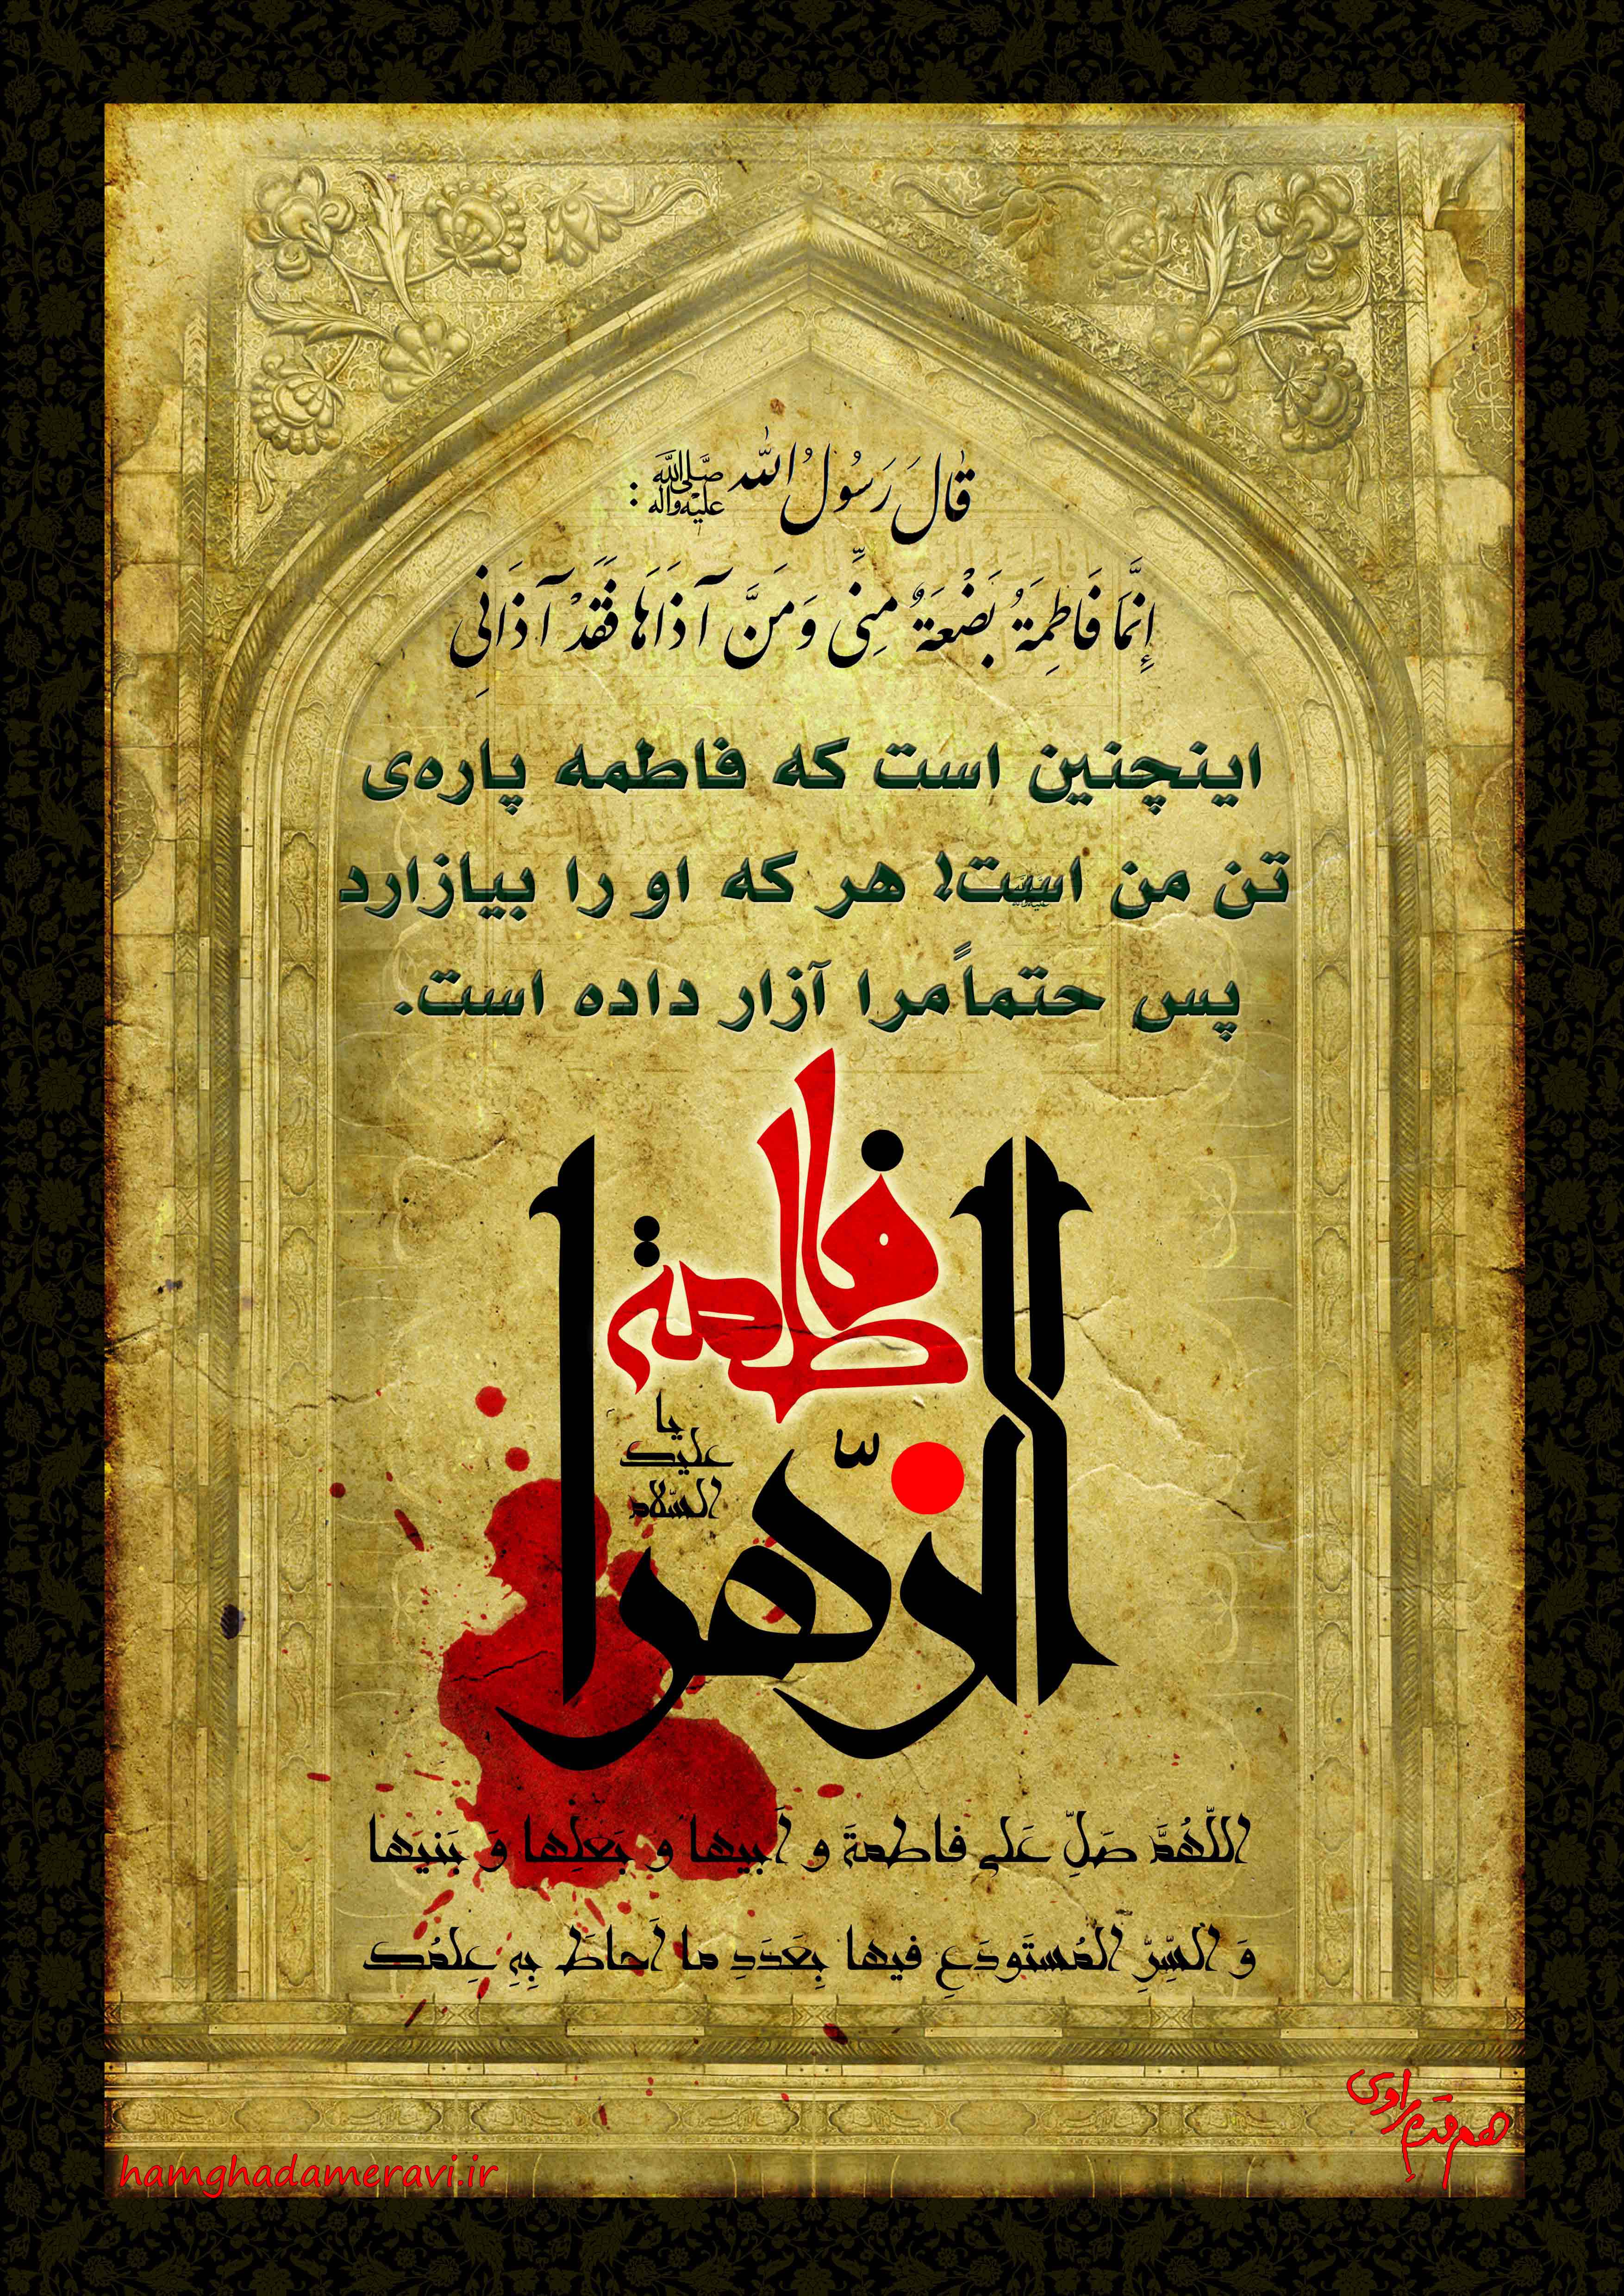 قالَ رَسُولُ اللّٰه صَلَّى اللّٰه عَلَيْهِ وَآلِه :
إِنَّمَا فَاطِمَةُ بَضْعَةٌ مِنِّي وَمَنَّ آذَاهَا فَقَدْ آذَانِي
اینچنین است که فاطمه پاره‌ی
تن من است! هر که او را بیازارد
پس حتماً مرا آزار داده است.
فاطمة
الزّهرا
السّلام
علیک
یا
اللّهُمَّ صَلِّ عَلی فاطمةَ و اَبیها وَ بَعْلِها وَ بَنیها
وَ السِّرِّ المُستَودَعِ فیها بِعَدَدِ ما اَحاطَ بِهِ عِلمُک
هم قدم راوی
hamghadameravi.ir